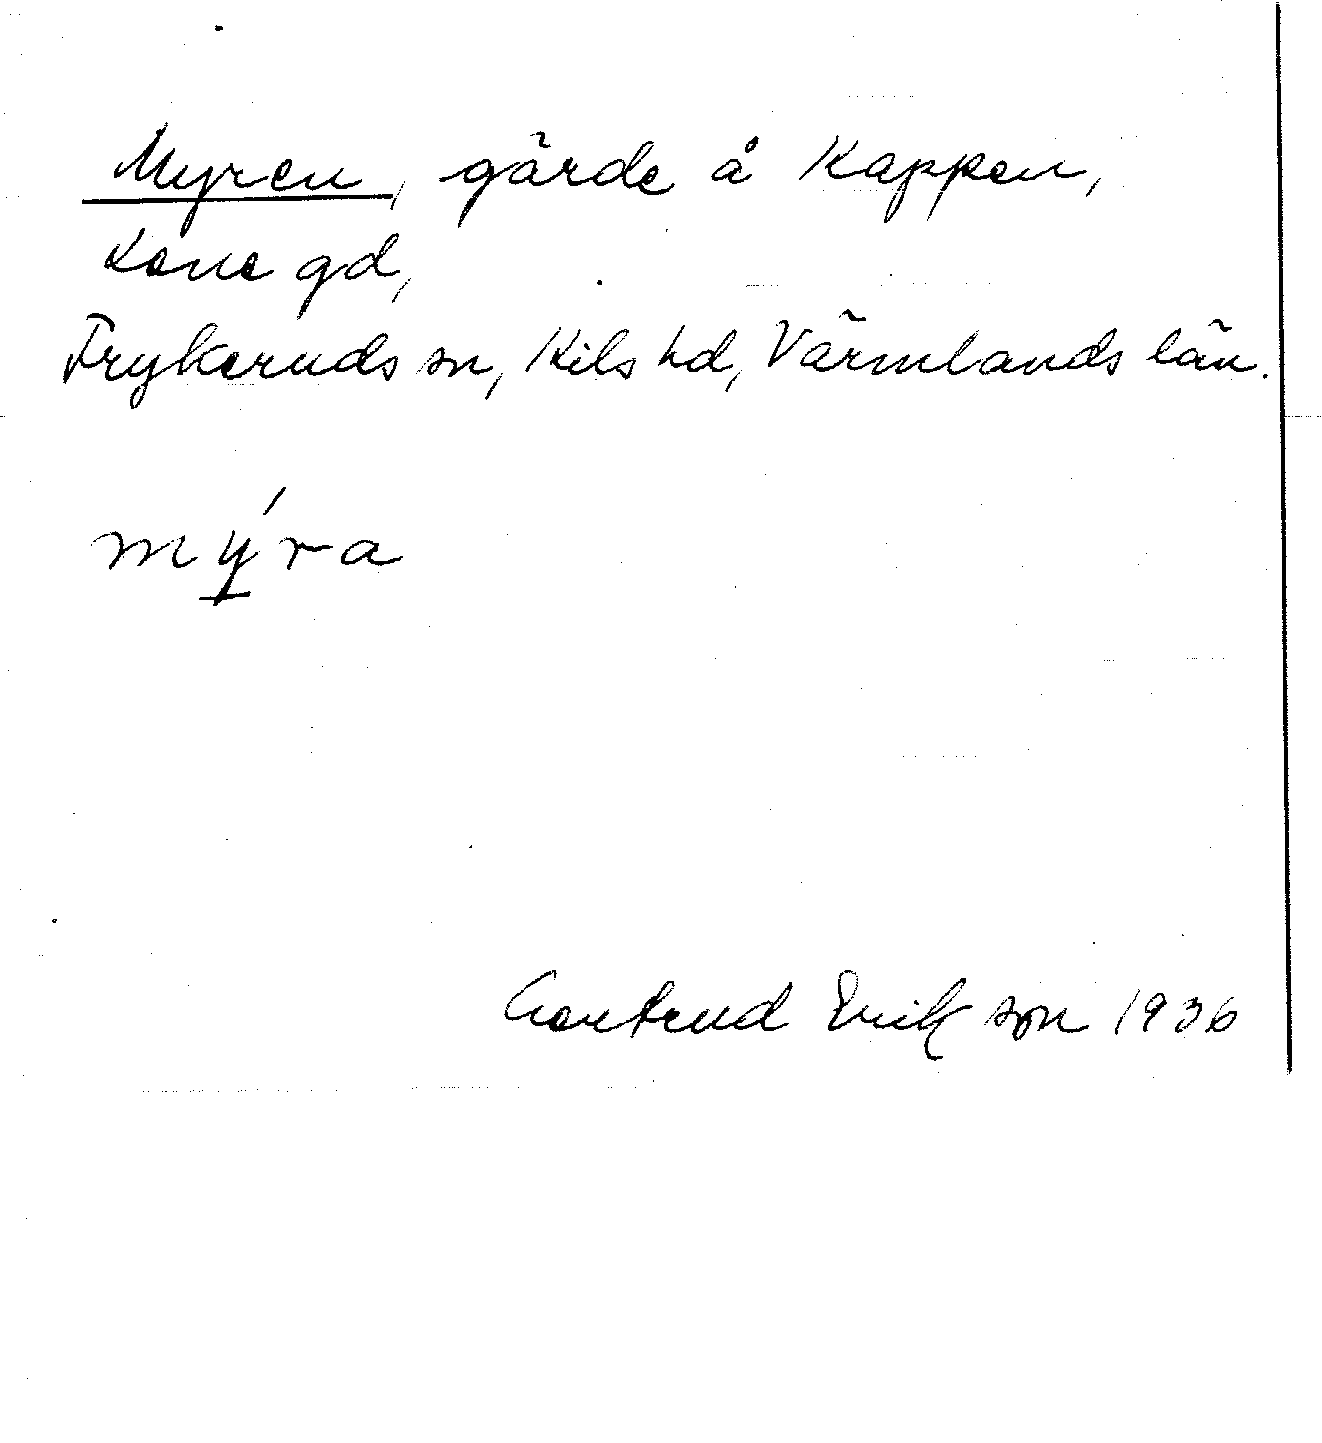 Myren, gärde å Kappen,
Lene gd,
Frykeruds sn, Kils hd, Värmlands län.
mýra
Gertrud Erikson 1936